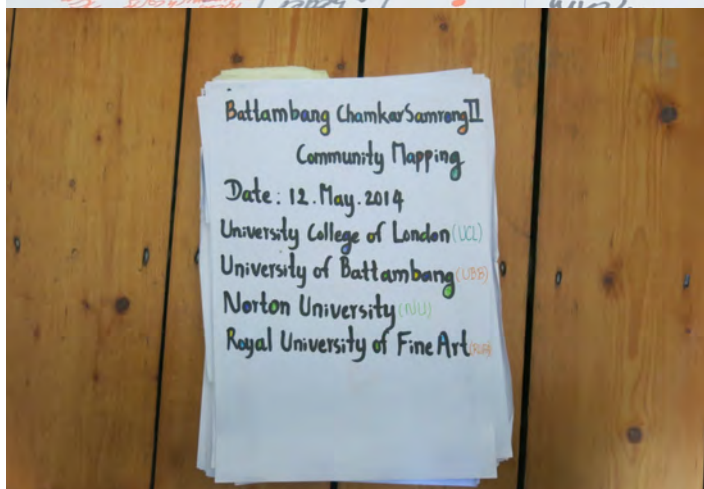 Battambang ChamkarSamrong II
Community Mapping
Date: 12.May.2014
University College of London (UCL)
University of Battambang (UBB)
Norton University (NU)
Royal University of Fine Art